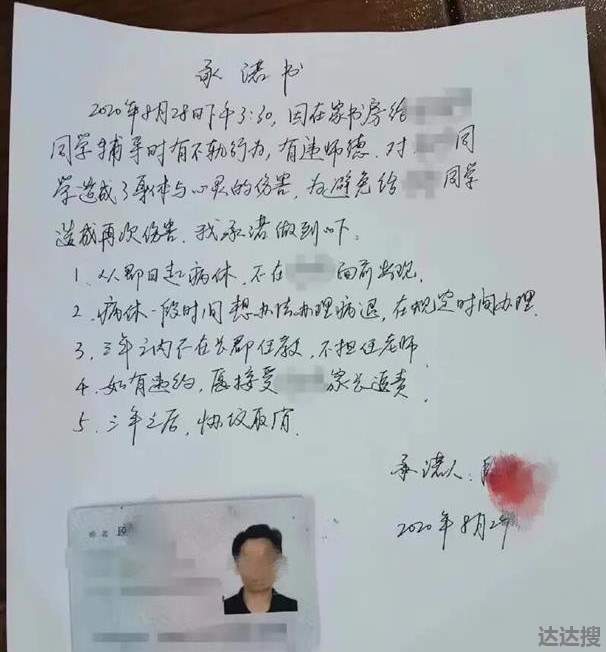 承诺书
2020年8月28日下午3:30,因在家书房给
同学辅导时有不轨行为,有违师德.对 同
学造成了身体与心灵的伤害,为避免给 同学
造成再次伤害.我承诺做到以下:
1、从即日起病休,不在 面前出现.
2、病休一段时间想办法办理病退,在规定时间办理.
3、三年之内不在长郡任教,不担任老师.
4、如有违约,愿接受 家长追责.
5、三年之后,协议取消.
承诺人:段
2020年8月2
姓名 段
达达搜